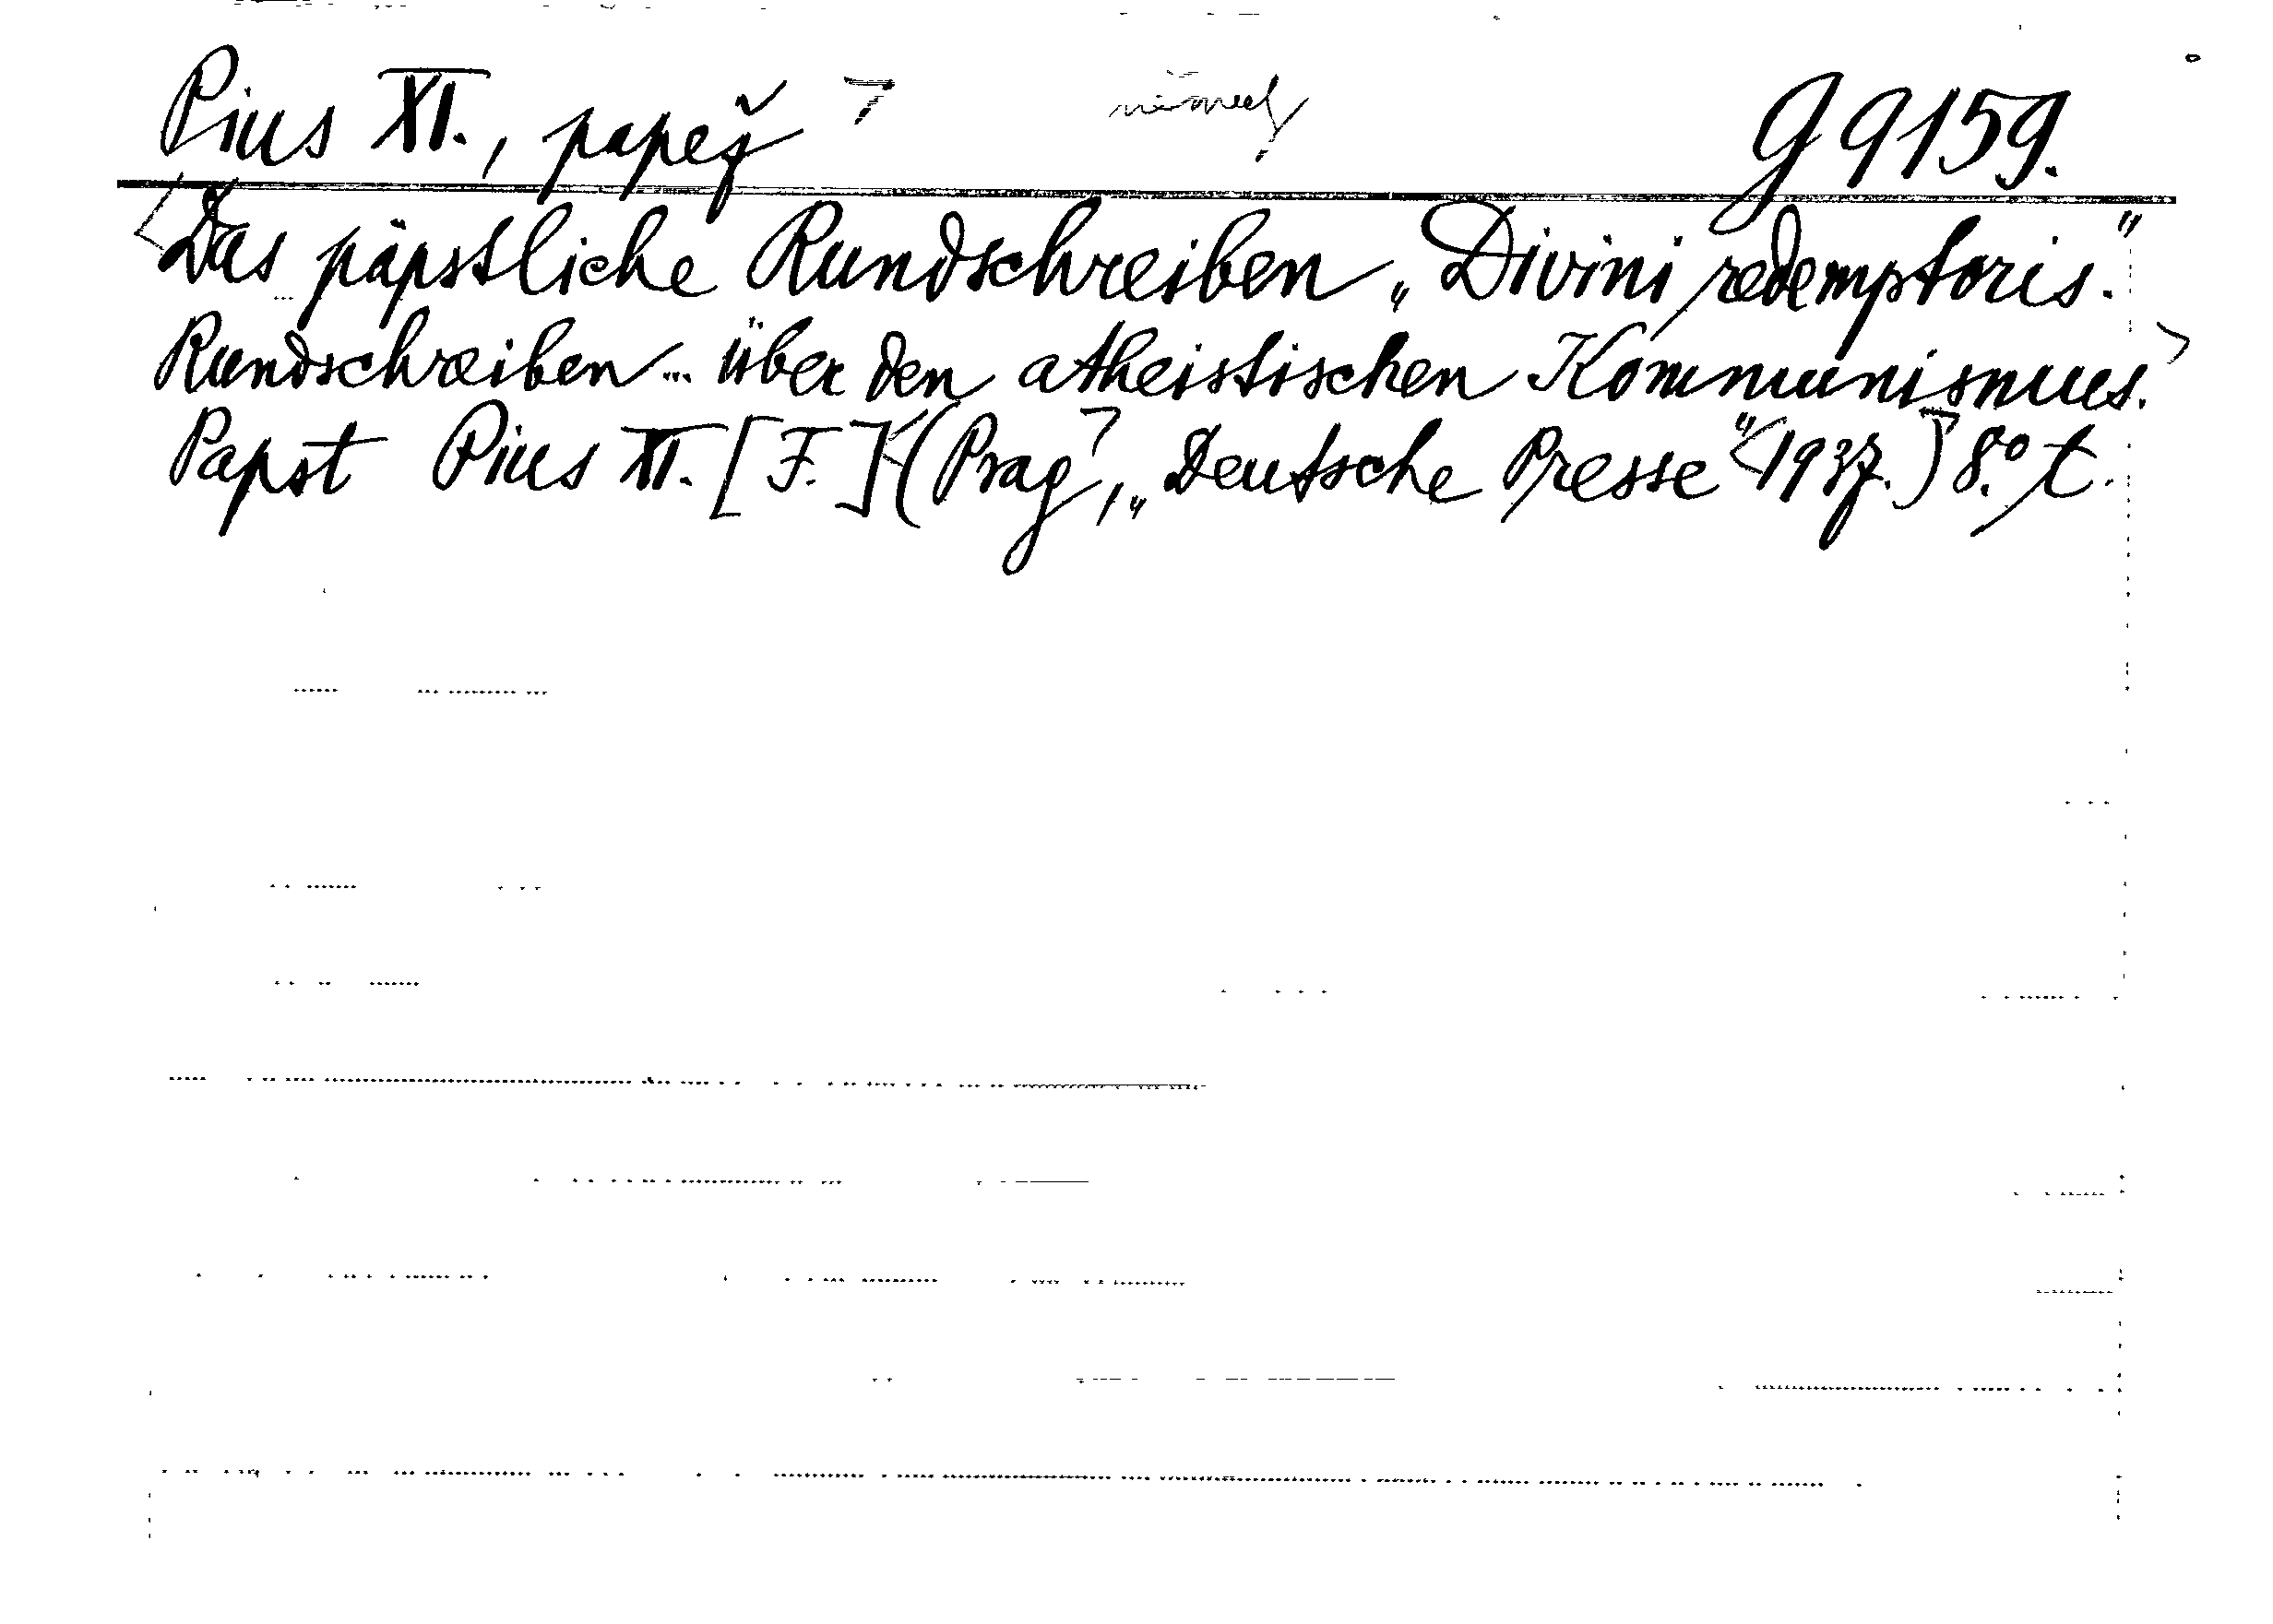 Pius XI., papež německy g 9159.
Das päpstliche Rundschreiben „Divini redemptoris."
Rundschreiben... über den atheistischen Kommunismus.
Papst Pius XI. [F.] (Prag, „Deutsche Presse" 1937.) 8.° t.